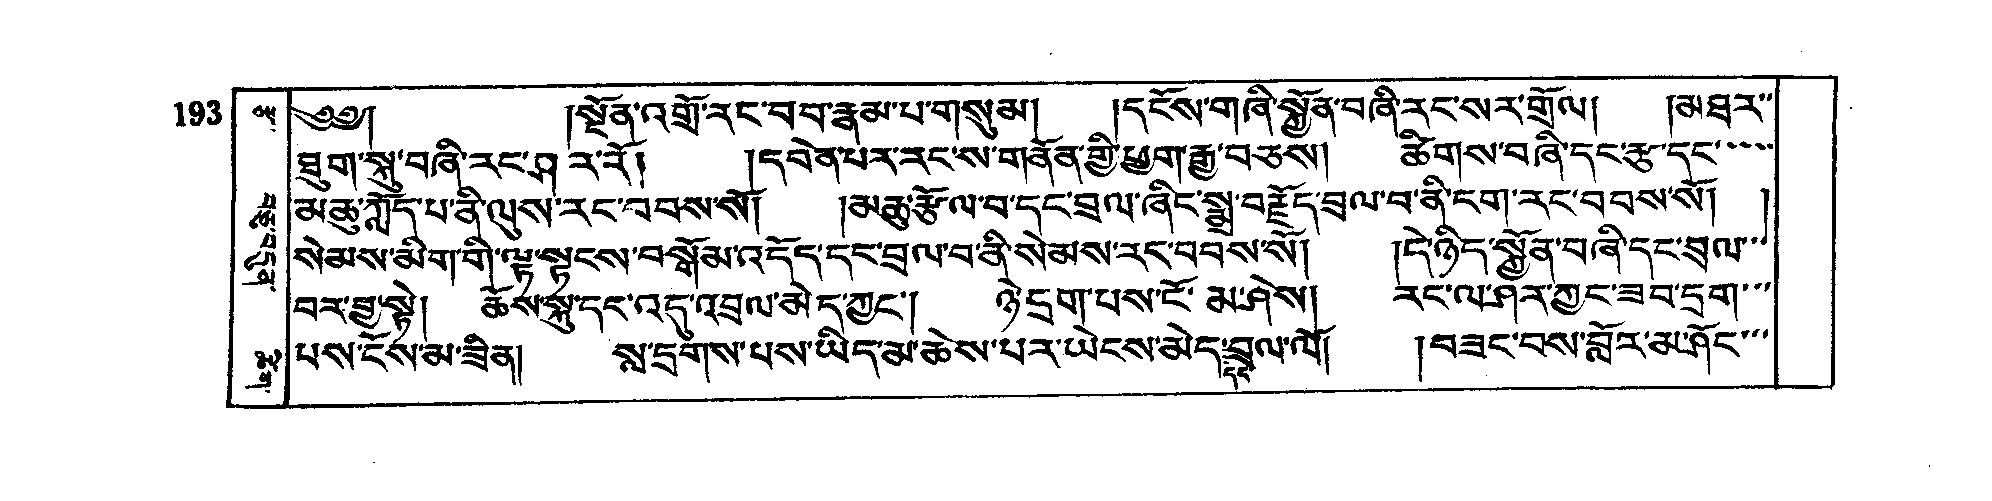 193
༄༅། །སྔོན་འགྲོ་རང་བབ་རྣམ་པ་གསུམ། །དངོས་གཞི་སྐྱོན་བཞི་རང་སར་གྲོལ། །མཐར་
ཐུག་སྐུ་བཞི་རང་ཤར་རོ། །དབེན་པར་རང་ས་གནོན་གྱི་ཕྱག་རྒྱ་བཅས། ཚིགས་བཞི་དང་རྩ་དང་
མཆུ་ཀློད་པ་ནི་ལུས་རང་བབས་སོ། །མཆུ་རྩོལ་བ་དང་བྲལ་ཞིང་སྨྲ་བརྗོད་བྲལ་བ་ནི་ངག་རང་བབས་སོ། །
སེམས་མིག་གི་ལྟ་སྟངས་བསྒོམ་འདོད་དང་བྲལ་བ་ནི་སེམས་རང་བབས་སོ། །དེ་ཉིད་སྐྱོན་བཞི་དང་བྲལ་
བར་བྱ་སྟེ། ཆོས་སྐུ་དང་འདུ་འབྲལ་མེད་ཀྱང་། ཉེ་དྲག་པས་ངོ་མ་ཤེས། རང་ལ་ཤར་ཀྱང་ཟབ་དྲག་
པས་ངོས་མ་ཟིན། སླ་དྲགས་པས་ཡིད་མ་ཆེས་པར་ཡེངས་མེད་ལ་ལོ། །བཟང་བས་བློར་མ་ཤོང་